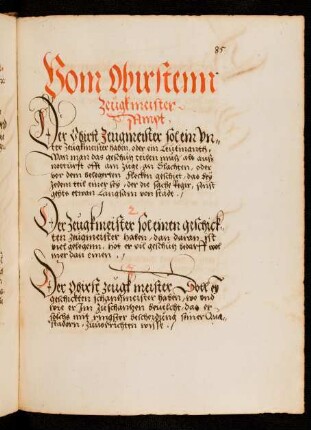 85
Vom Obirstenn
Zeugkmeister
Ampt.
Der Obirst Zeugmeister sol ein Vn-
ter Zeugkmeister haben, oder ein Leutenanth,
Wan man das geschutz teilen muss, als
offt am Zuge, zu Slachten, oder
vor dem belegerten flecken geschiet, das bey
jedem teil einer sey, der die sache fuger, sunst
gehts etwan Langsam von stadt.
2
Der Zeugkmeister sol einen geschick-
ten Zeugwmeister haben, dan daran ist
viel gelegenn, hot er viel geschutz bedarff wol
mer dan einen ./
3
Der Obirst Zeugk meister Soll
geschickten schantzmeister haben, wo vnd
wie er Im zuschantzen beuelcht, das er
solchs mit ringster beschedigung seiner
zuuorrichten wisse ./